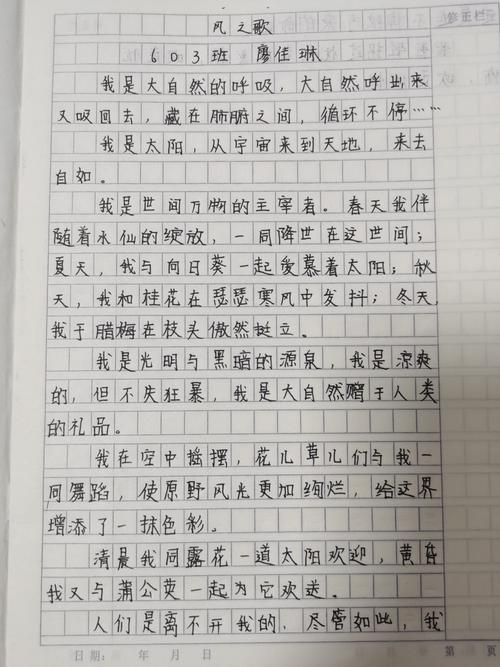 风之歌
603班 廖佳琳
我是大自然的呼吸,大自然呼出来
又吸回去,藏在肺腑之间,循环不停……
我是太阳,从宇宙来到天地,来去
自如。
我是世间万物的主宰者。春天我伴
随着水仙的绽放,一同降世在这世间;
夏天,我与向日葵一起爱慕着太阳;秋
天,我和桂花在瑟瑟寒风中发抖;冬天,
我于腊梅在枝头傲然挺立。
我是光明与黑暗的源泉,我是凉爽
的,但不失狂暴,我是大自然赠于人类
的礼品。
我在空中摇摆,花儿草儿们与我一
同舞蹈,使原野风光更加绚烂,给这界
增添了一抹色彩。
清晨我同露花一道太阳欢迎,黄昏
我又与蒲公英一起为它欢送。
人们是离不开我的,尽管如此,我
修正栏
日期: 年 月 日
第 页